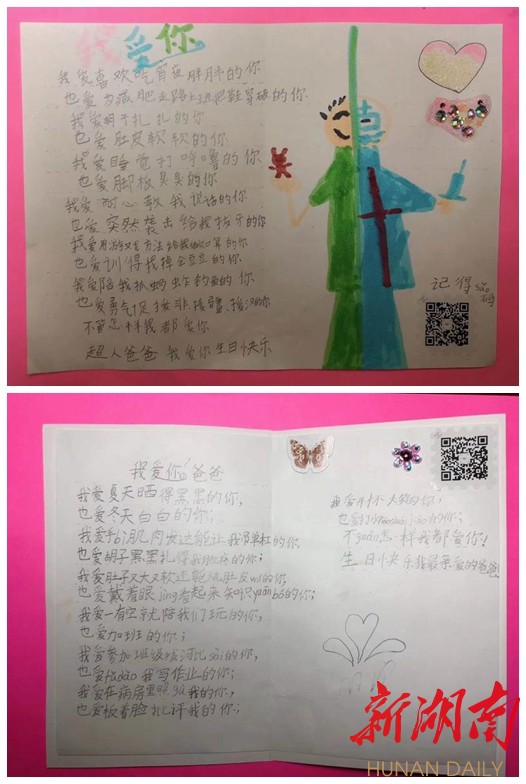 我爱你
我爱喜欢吃宵夜胖胖的你
也爱为减肥走路上班把鞋穿破的你
我爱胡子扎扎的你
也爱肚皮软软的你
我爱睡觉打呼噜的你
也爱脚板臭臭的你
我爱耐心教我说话的你
也爱突然袭击给我拔牙的你
我爱用游戏方法给我做口算的你
也爱训得我掉金豆的你
我爱陪我抓蚂蚱钓鱼的你
也爱勇气促援非接疆援汉的你
不管怎样我都爱你
超人爸爸 我爱你生日快乐
记得sǎo
码
我爱你爸爸
我爱夏天晒得黑黑的你，
也爱冬天白白的你；
我爱手bì肌肉发达能让我吊单杠的你
也爱胡子黑黑扎得我的你；
我爱肚子又大又软还能玩肚皮wǔ的你
也爱戴着眼jìng看起来知识yuān bó的你；
我爱一有空就陪我们玩的你，
也爱加班的你；
我爱参加班级拔河比sài的你，
也爱fǔdǎo我写作业的你；
我爱在病房里照gù我的你，
也爱板着脸批评我的你；
我爱开怀大笑的你，
不guǎn怎样我都爱你！
生日快乐我最亲爱的爸爸
新湖南
HUNAN DAILY